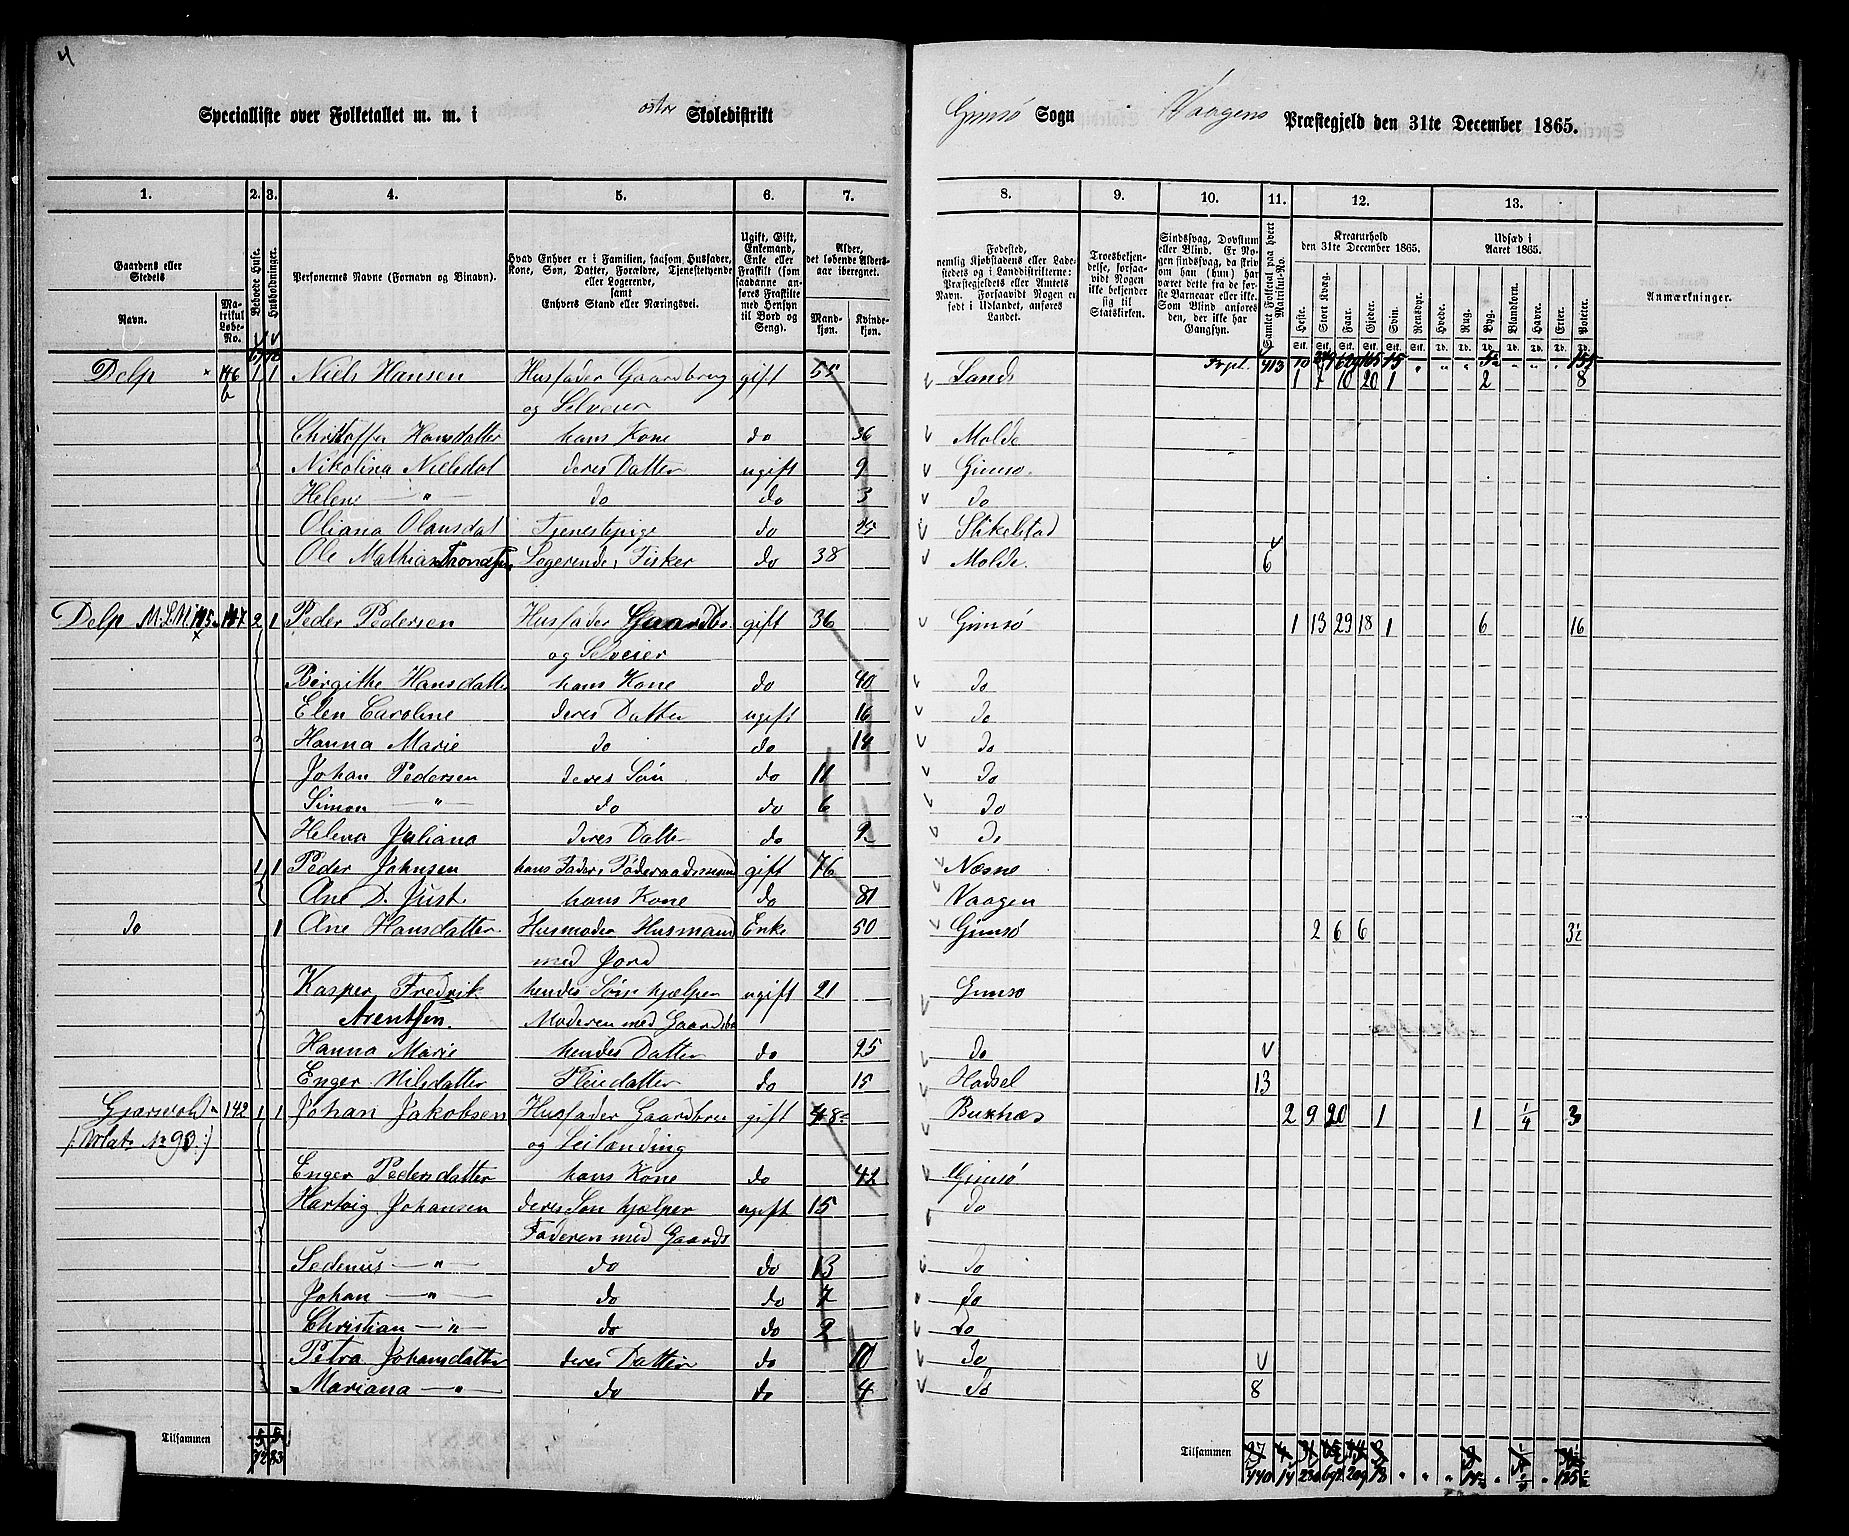 4
Specialliste over Folketallet m. m. i østre Skoledistrikt Gimsø Sogn Vaagens Præstegjeld den 31te December 1865.
1. 2. 3. 4. 5. 6. 7. 8. 9. 10. 11. 12. 13.
Gaardens eller Stedets
Navn.
Matrikul Løbe-No.
Beboede Huse.
Husholdninger.
Personernes Navne (Fornavn og Binavn).
Hvad Enhver er i Familien, saasom Husfader, Kone, Søn, Datter, Forældre, Tjenestetyende eller Logerende, samt Enhvers Stand eller Næringsvei.
Ugift, Gift, Enkemand, Enke eller Fraskilt (som saadanne anføres Fraskilte med Hensyn til Bord og Seng).
Alder, det løbende Aldersaar iberegnet.
Mandkjøn. Kvindekjøn.
Fødested, nemlig Kjøbstadens eller Ladestedets og i Landdistrikterne: Præstegjeldets eller Amtets Navn. Forsaavidt Nogen er født i Udlandet, anføres Landet.
Troesbekjendelse, forsaavidt Nogen ikke bekjender sig til Statskirken.
Sindssvag, Døvstum eller Blind. Er Nogen sindssvag, da skriv om han (hun) har været dette fra de første Barneaar eller ikke. Som Blind anføres den, der ikke har Gangsyn.
Samlet Folketal paa hvert Matrikul-No.
Kreaturhold den 31te December 1865.
Heste. Stort Kvæg. Faar. Gjeder. Svin. Rensdyr.
Udsæd i Aaret 1865.
Hvede. Rug. Byg. Blandkorn. Havre. Erter. Poteter.
Anmærkninger.
Delp 146 b 1 1 Niels Hansen Husfader Gaardbrug gift 55 Sands Trpt. 413 1 7 10 20 1 2 8
og Selveier
Christoffa Hansdatter hans Kone do 36 Molde
Nikolina Nielsdat deres Datter ugift 9 Gimsø.
Helene — " — do do 3 do
Oliana Olausdat Tjenestepige do 25 Stikelstad
Ole Mathias Logerende, Fisker do 38 Molde. 6
Delp 147 2 1 Peder Pedersen Husfader Gaardbr. gift 36 Gimsø 1 13 29 18 1 6 16
og Selveier
Birgithe Hansdatter hans Kone do 40 do
Elen Caroline deres Datter ugift 16 do
Hanna Marie do do 14 do
Johan Pedersen deres Søn do 11 do
Simon — " — do do 6 do
Helena Juliana deres Datter do 9 do
1 1 Peder Johnsen hans Fader, Føderaadsmand gift 76 Næsne
Ane D. Just. hans Kone do 81 Vaagen
do 1 Ane Hansdatter Husmoder Husmand Enke 50 Gimsø 2 6 6 3½
med Jord
Kasper Fredrik hendes Søn hjælper ugift 21 Gimsø
Arentsen. Moderen med Gaardsbr
Hanna Marie hendes Datter do 25 do
Enger Nilsdatter Pleiedatter do 15 Hadsel 13
142 1 1 Johan Jakobsen Husfader Gaardbrug gift 48 Buxnæs 2 9 20 1 1 ¼ 3
No 93.:) og Leilænding
Enger Pedersdatter hans Kone do 42 Gimsø
Hartvig Johansen deres Søn hjælper ugift 15 do
Faderen med Gaards
Sedenius — " — do do 13 do
Johan — " — do do 7 do
Christian — " — do do 2 do
Petra Johansdatter deres Datter do 10 do
Mariana — " — do do 4 do 8
Tilsammen 5 5
Tilsammen
440 14